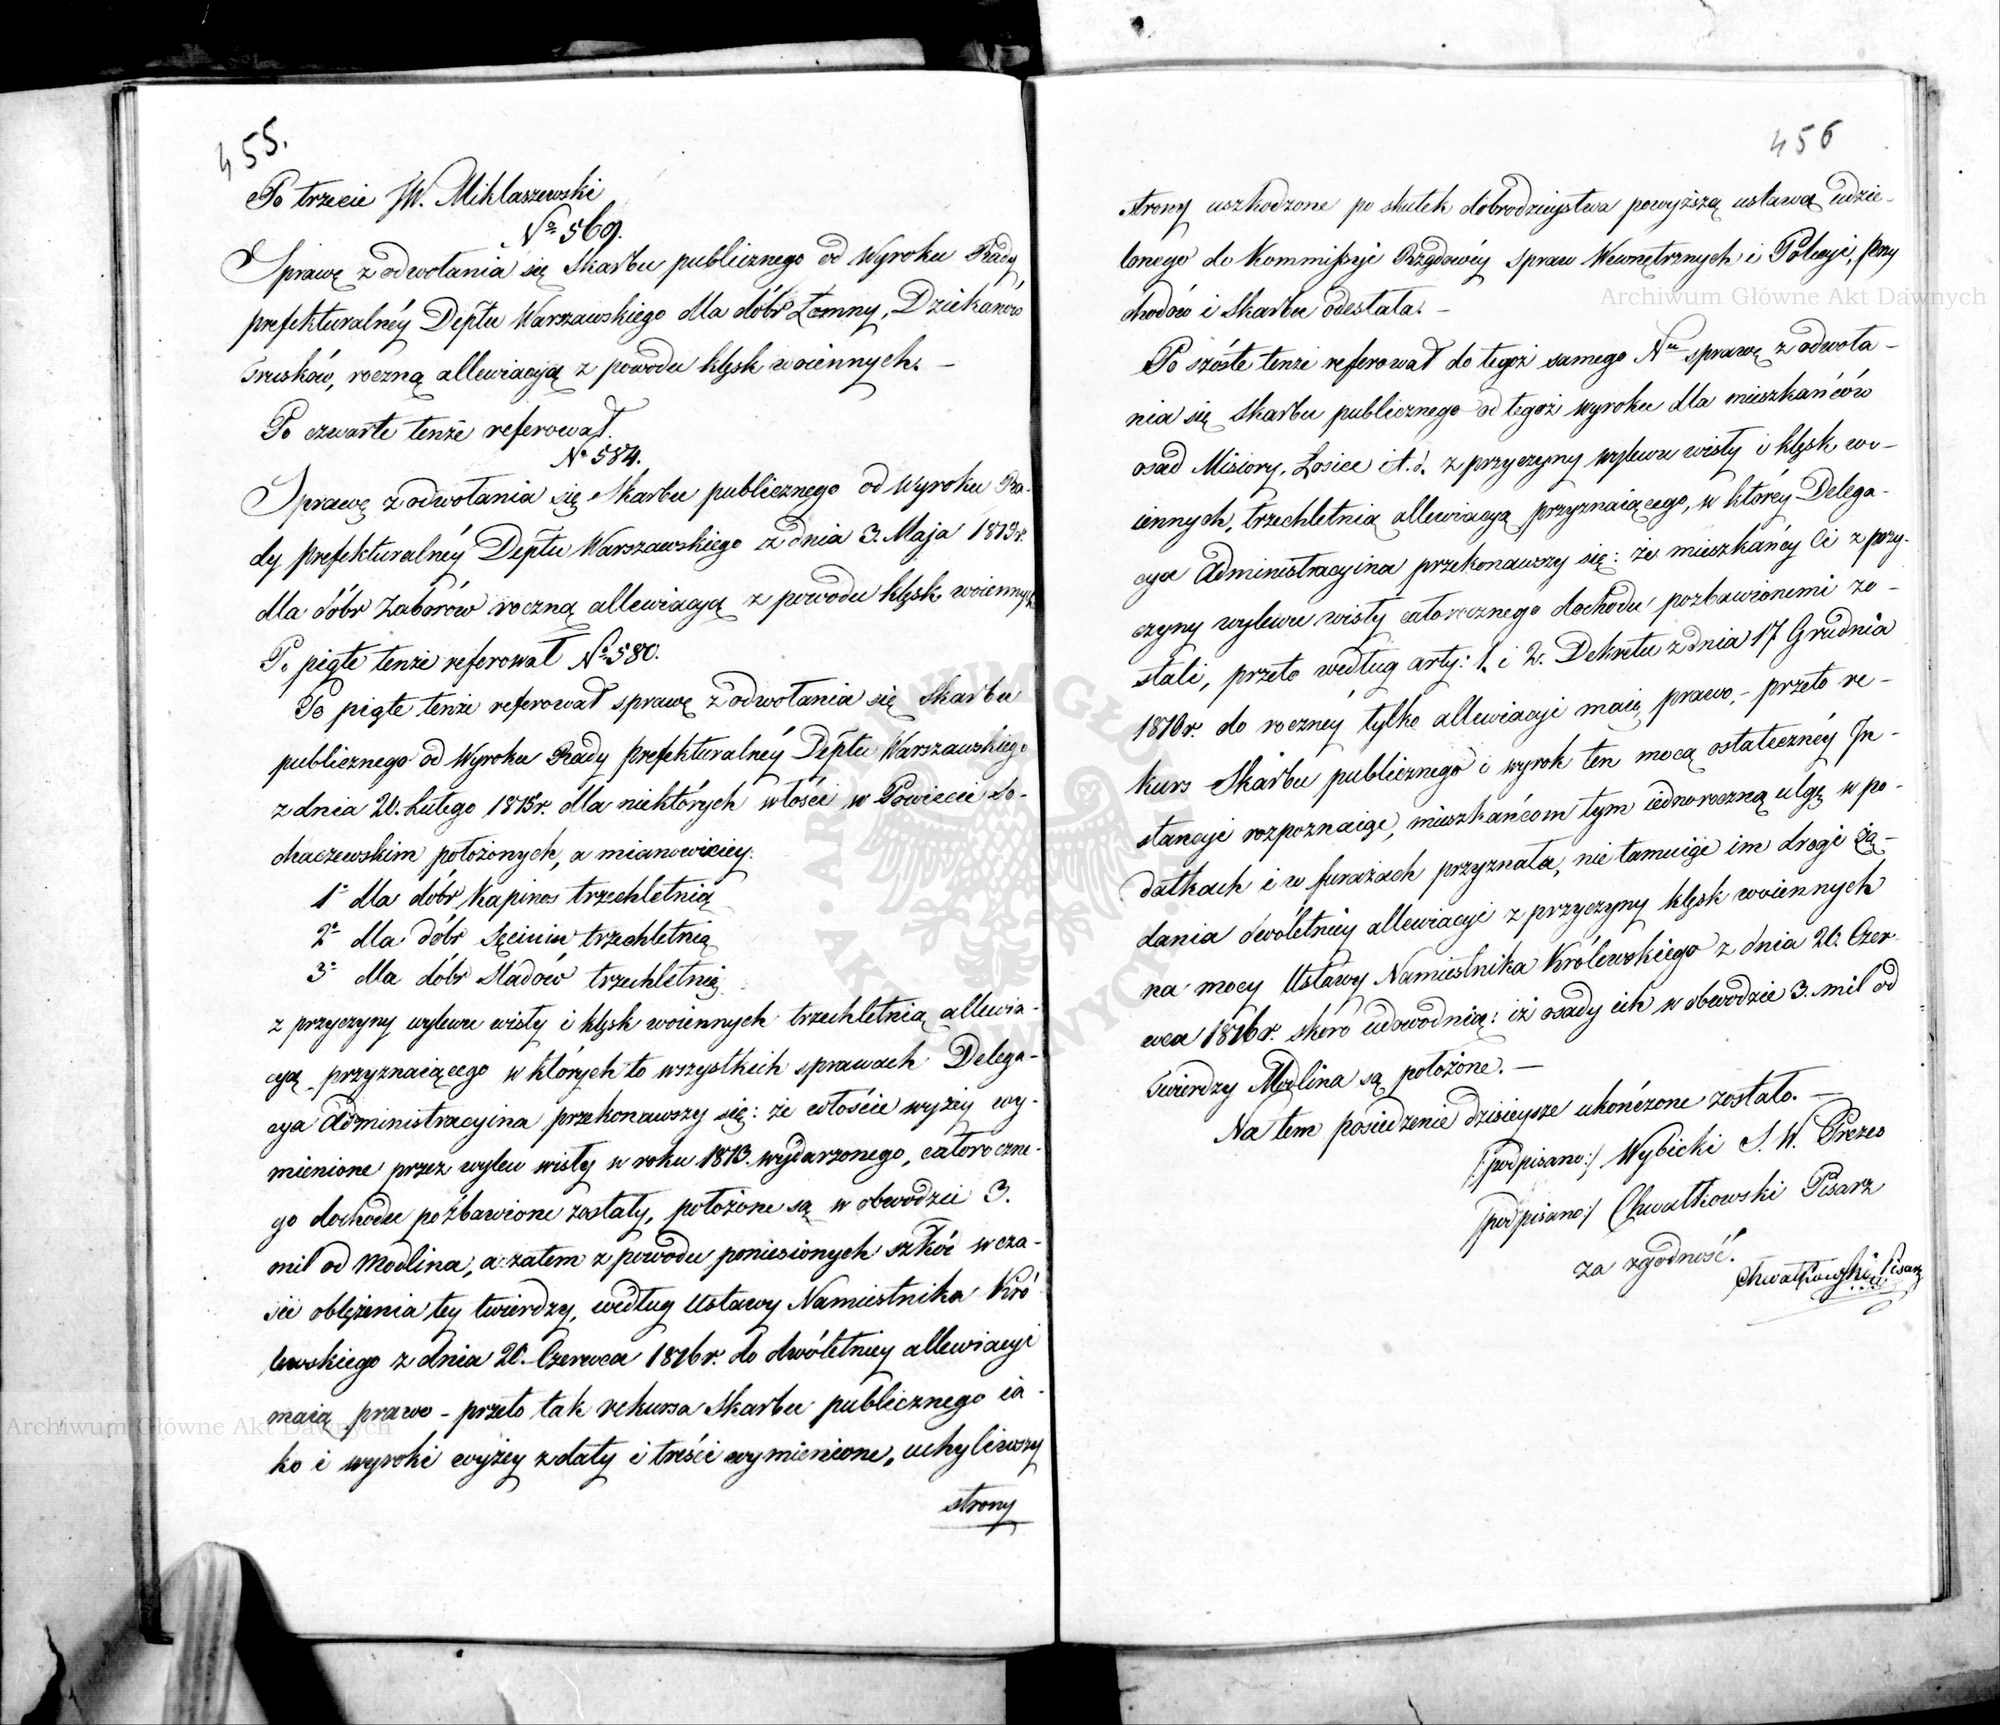 455.
Po trzecie JW. Miklaszewski
No 569.
Sprawę z odwołania się Skarbu publicznego od Wyroku Rady
prefekturalnéy Deptu Warszawskiego dla dóbr Łomny, Dziekanów
roczną allewiacyą z powodu klęsk woiennych. —
Po czwarte tenże referował.
No 584.
Sprawę z odwołania się Skarbu publicznego od Wyroku Ra-
dy prefekturalnéy Deptu Warszawskiego z dnia 3. Maja 1813r.
dla dóbr Zaborów roczną allewiacyą z powodu klęsk woiennych
Po piąte tenże referował No 580.
Po piąte tenże referował sprawę z odwołania się Skarbu
publicznego od Wyroku Rady prefekturalnéy Deptu Warszawskiego
z dnia 20. Lutego 1815r. dla niektórych włości w Powiecie So-
chaczewskim położonych, a mianowiciey:
1o dla dóbr Kapinos trzechletnią
2o dla dóbr trzechletnią
3o dla dóbr Sladów trzechletnią
z przyczyny wylewu wisły i klęsk woiennych trzechletnią allewia-
cyą przyznaiącego w których to wszystkich sprawach Delega-
cya Administracyina przekonawszy się: że włoście wyżey wy-
mienione przez wylew wisły w roku 1813. wydarzonego, całoroczne-
go dochodu pozbawione zostały, położone są w obwodzie 3.
mil od Modlina, a zatem z powodu poniesionych szkód w cza-
sie oblężenia tey twierdzy, według Ustawy Namiestnika Kró-
lewskiego z dnia 20. Czerwca 1816r. do dwóletniey allewiacyi
maią prawo – przeto tak rekursa Skarbu publicznego ia-
ko i wyroki wyżey z daty i treści wymienione, uchyliwszy
strony
456
strony uszkodzone po skutek dobrodzieystwa powyższą ustawą udzie-
lonego do Kommissyi Rządowéy spraw Wewnętrznych i Policyi, Przy
chodów i Skarbu odesłała. –
Po szóste tenże referował do tegoż samego Nru sprawę z odwoła-
nia się Skarbu publicznego od tegoż wyroku dla mieszkańców
osad Misiory, Łosice i t. d. z przyczyny wylewu wisły i klęsk wo-
iennych, trzechletnią allewiacyą przyznaiącego, w któréy Delega-
cya Administracyina przekonawszy się: że mieszkańcy Ci z przy-
czyny wylewu wisły całorocznego dochodu pozbawionemi zo-
stali, przeto według arty: 1. i 2. Dekretu z dnia 17 Grudnia
1810r. do roczney tylko allewiacyi maią prawo, – przeto re-
kurs Skarbu publicznego i wyrok ten mocą ostateczney In-
stancyi rozpoznaiąc, mieszkańcom tym iednoroczną ulgę w po-
datkach i w furażach przyznała, nie tamuiąc im drogi żą-
dania dwóletniey allewiacyi z przyczyny klęsk woiennych
na mocy Ustawy Namiestnika Królewskiego z dnia 20. Czer-
wca 1816r. skoro udowodnią: iż osady ich w obwodzie 3. mil od
twierdzy Modlina są położone. —
Na tem posiedzenie dzisieysze ukończone zostało. —
/:podpisano:/ Wybicki S. W. Prezes
/podpisano:/ Chwałkowski Pisarz
za zgodność.
Chwałkowski Pisarz
Archiwum Główne Akt Dawnych
Archiwum Główne Akt Dawnych